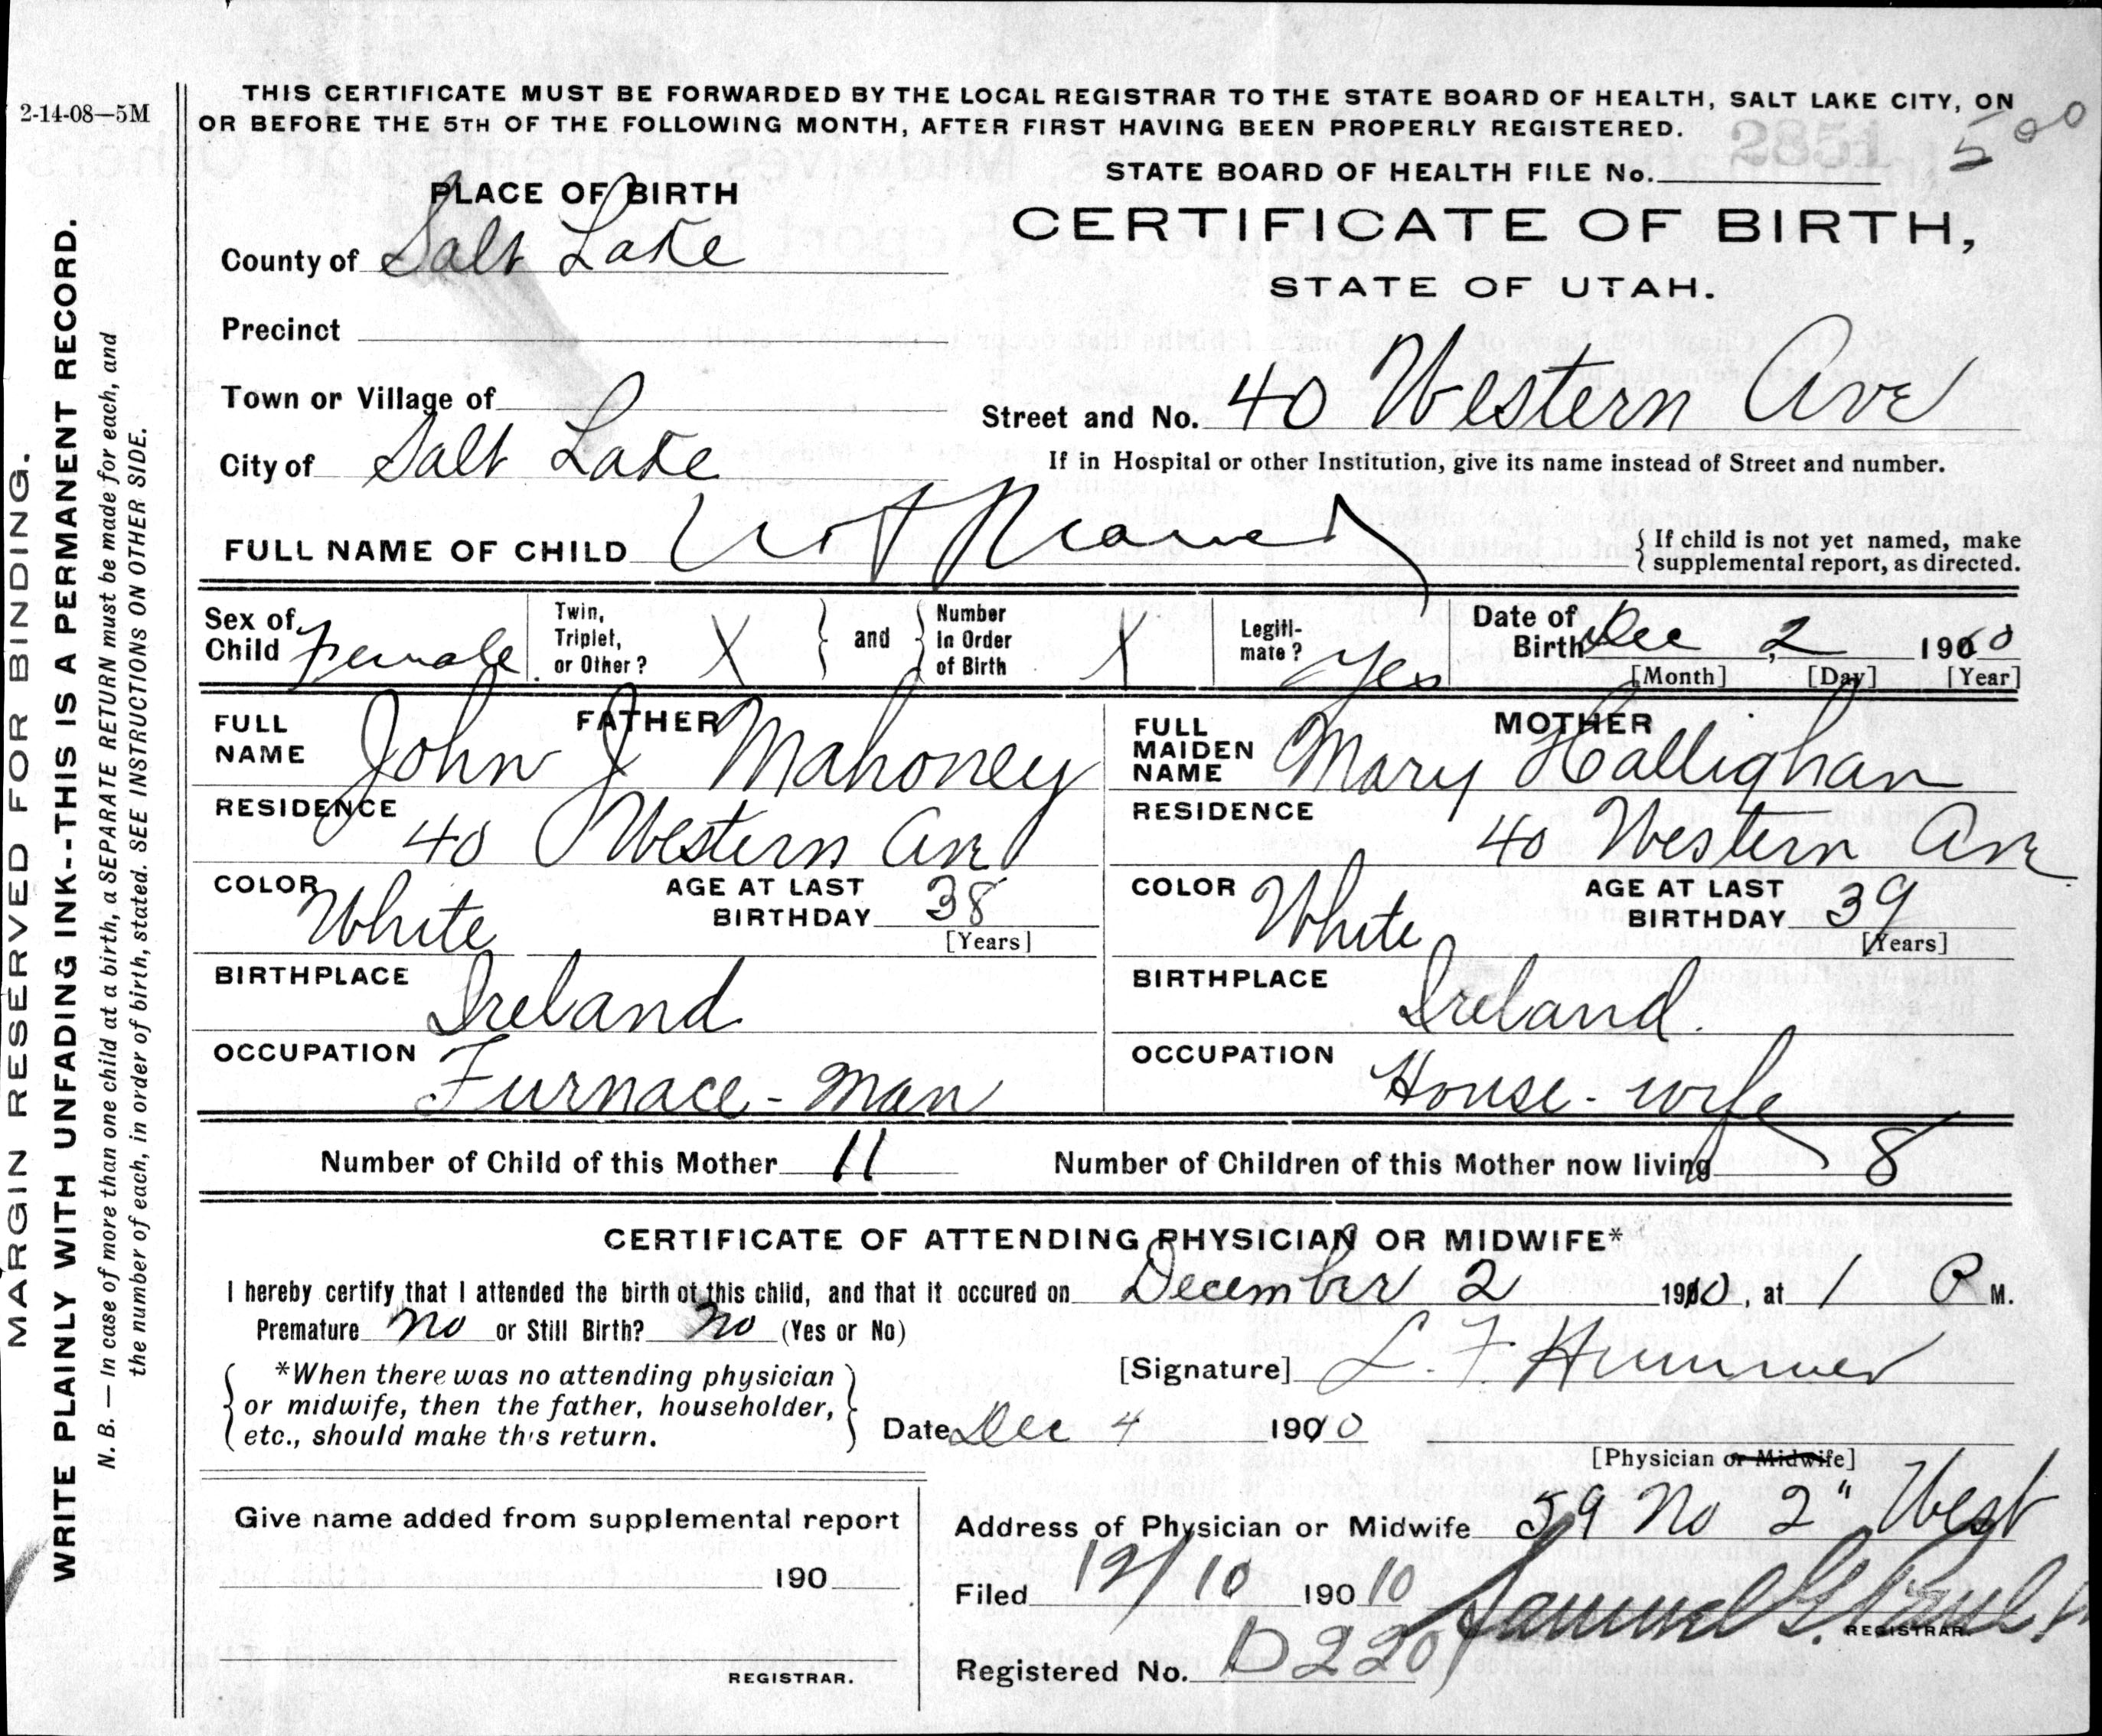 2-14-08—5M
THIS CERTIFICATE MUST BE FORWARDED BY THE LOCAL REGISTRAR TO THE STATE BOARD OF HEALTH, SALT LAKE CITY, ON
OR BEFORE THE 5TH OF THE FOLLOWING MONTH, AFTER FIRST HAVING BEEN PROPERLY REGISTERED.
2851
5 00
STATE BOARD OF HEALTH FILE No.
CERTIFICATE OF BIRTH,
STATE OF UTAH.
PLACE OF BIRTH
County of Salt Lake
Precinct
Town or Village of
Street and No. 40 Western Ave
City of Salt Lake
If in Hospital or other Institution, give its name instead of Street and number.
FULL NAME OF CHILD Not Named
{ If child is not yet named, make
supplemental report, as directed.
Sex of Child Female
Twin, Triplet, or Other? X } and { Number In Order of Birth X
Legiti-mate? Yes
Date of Birth Dec, 2 1910
[Month] [Day] [Year]
FATHER
FULL NAME John J Mahoney
RESIDENCE 40 Western Ave
COLOR White
AGE AT LAST BIRTHDAY 38
[Years]
BIRTHPLACE Ireland
OCCUPATION Furnace-man
MOTHER
FULL MAIDEN NAME Mary Hallighan
RESIDENCE 40 Western Ave
COLOR White
AGE AT LAST BIRTHDAY 39
[Years]
BIRTHPLACE Ireland.
OCCUPATION House-wife
Number of Child of this Mother 11
Number of Children of this Mother now living 8
CERTIFICATE OF ATTENDING PHYSICIAN OR MIDWIFE*
I hereby certify that I attended the birth of this child, and that it occured on December 2 1910, at 1 P M.
Premature no or Still Birth? no (Yes or No)
{ *When there was no attending physician
or midwife, then the father, householder,
etc., should make this return. }
[Signature] L. F. Hummer
Date Dec 4 1910
[Physician or Midwife]
Give name added from supplemental report
190
REGISTRAR.
Address of Physician or Midwife 59 No 2" West
Filed 12/10 190 10 Samuel G. Paul
REGISTRAR.
Registered No. D2201
MARGIN RESERVED FOR BINDING.
WRITE PLAINLY WITH UNFADING INK--THIS IS A PERMANENT RECORD.
N. B. — In case of more than one child at a birth, a SEPARATE RETURN must be made for each, and
the number of each, in order of birth, stated. SEE INSTRUCTIONS ON OTHER SIDE.